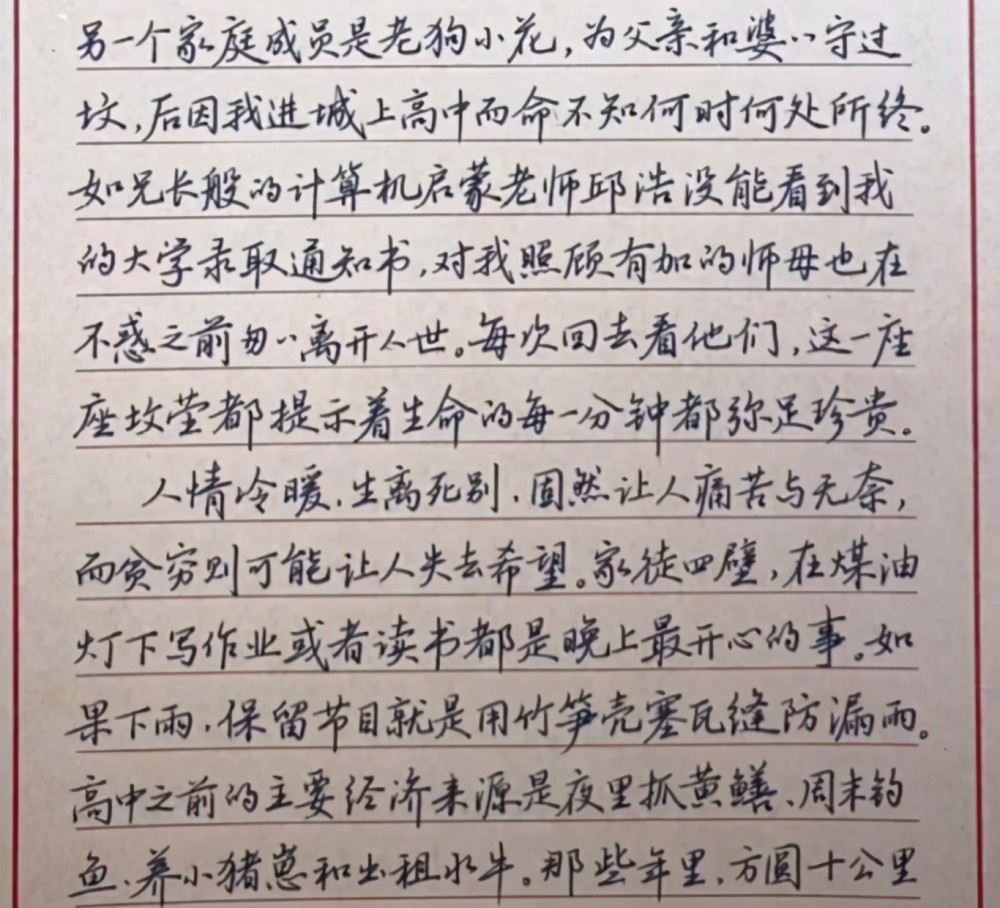 另一个家庭成员是老狗小花，为父亲和婆々守过
坟，后因我进城上高中而命不知何时何处所终。
如兄长般的计算机启蒙老师邱浩没能看到我
的大学录取通知书，对我照顾有加的师母也在
不惑之前匆々离开人世。每次回去看他们，这一座
座坟茔都提示着生命的每一分钟都弥足珍贵。
人情冷暖，生离死别，固然让人痛苦与无奈，
而贫穷则可能让人失去希望。家徒四壁，在煤油
灯下写作业或者读书都是晚上最开心的事。如
果下雨，保留节目就是用竹笋壳塞瓦缝防漏雨。
高中之前的主要经济来源是夜里抓黄鳝、周末钓
鱼、养小猪崽和出租水牛。那些年里，方圆十公里